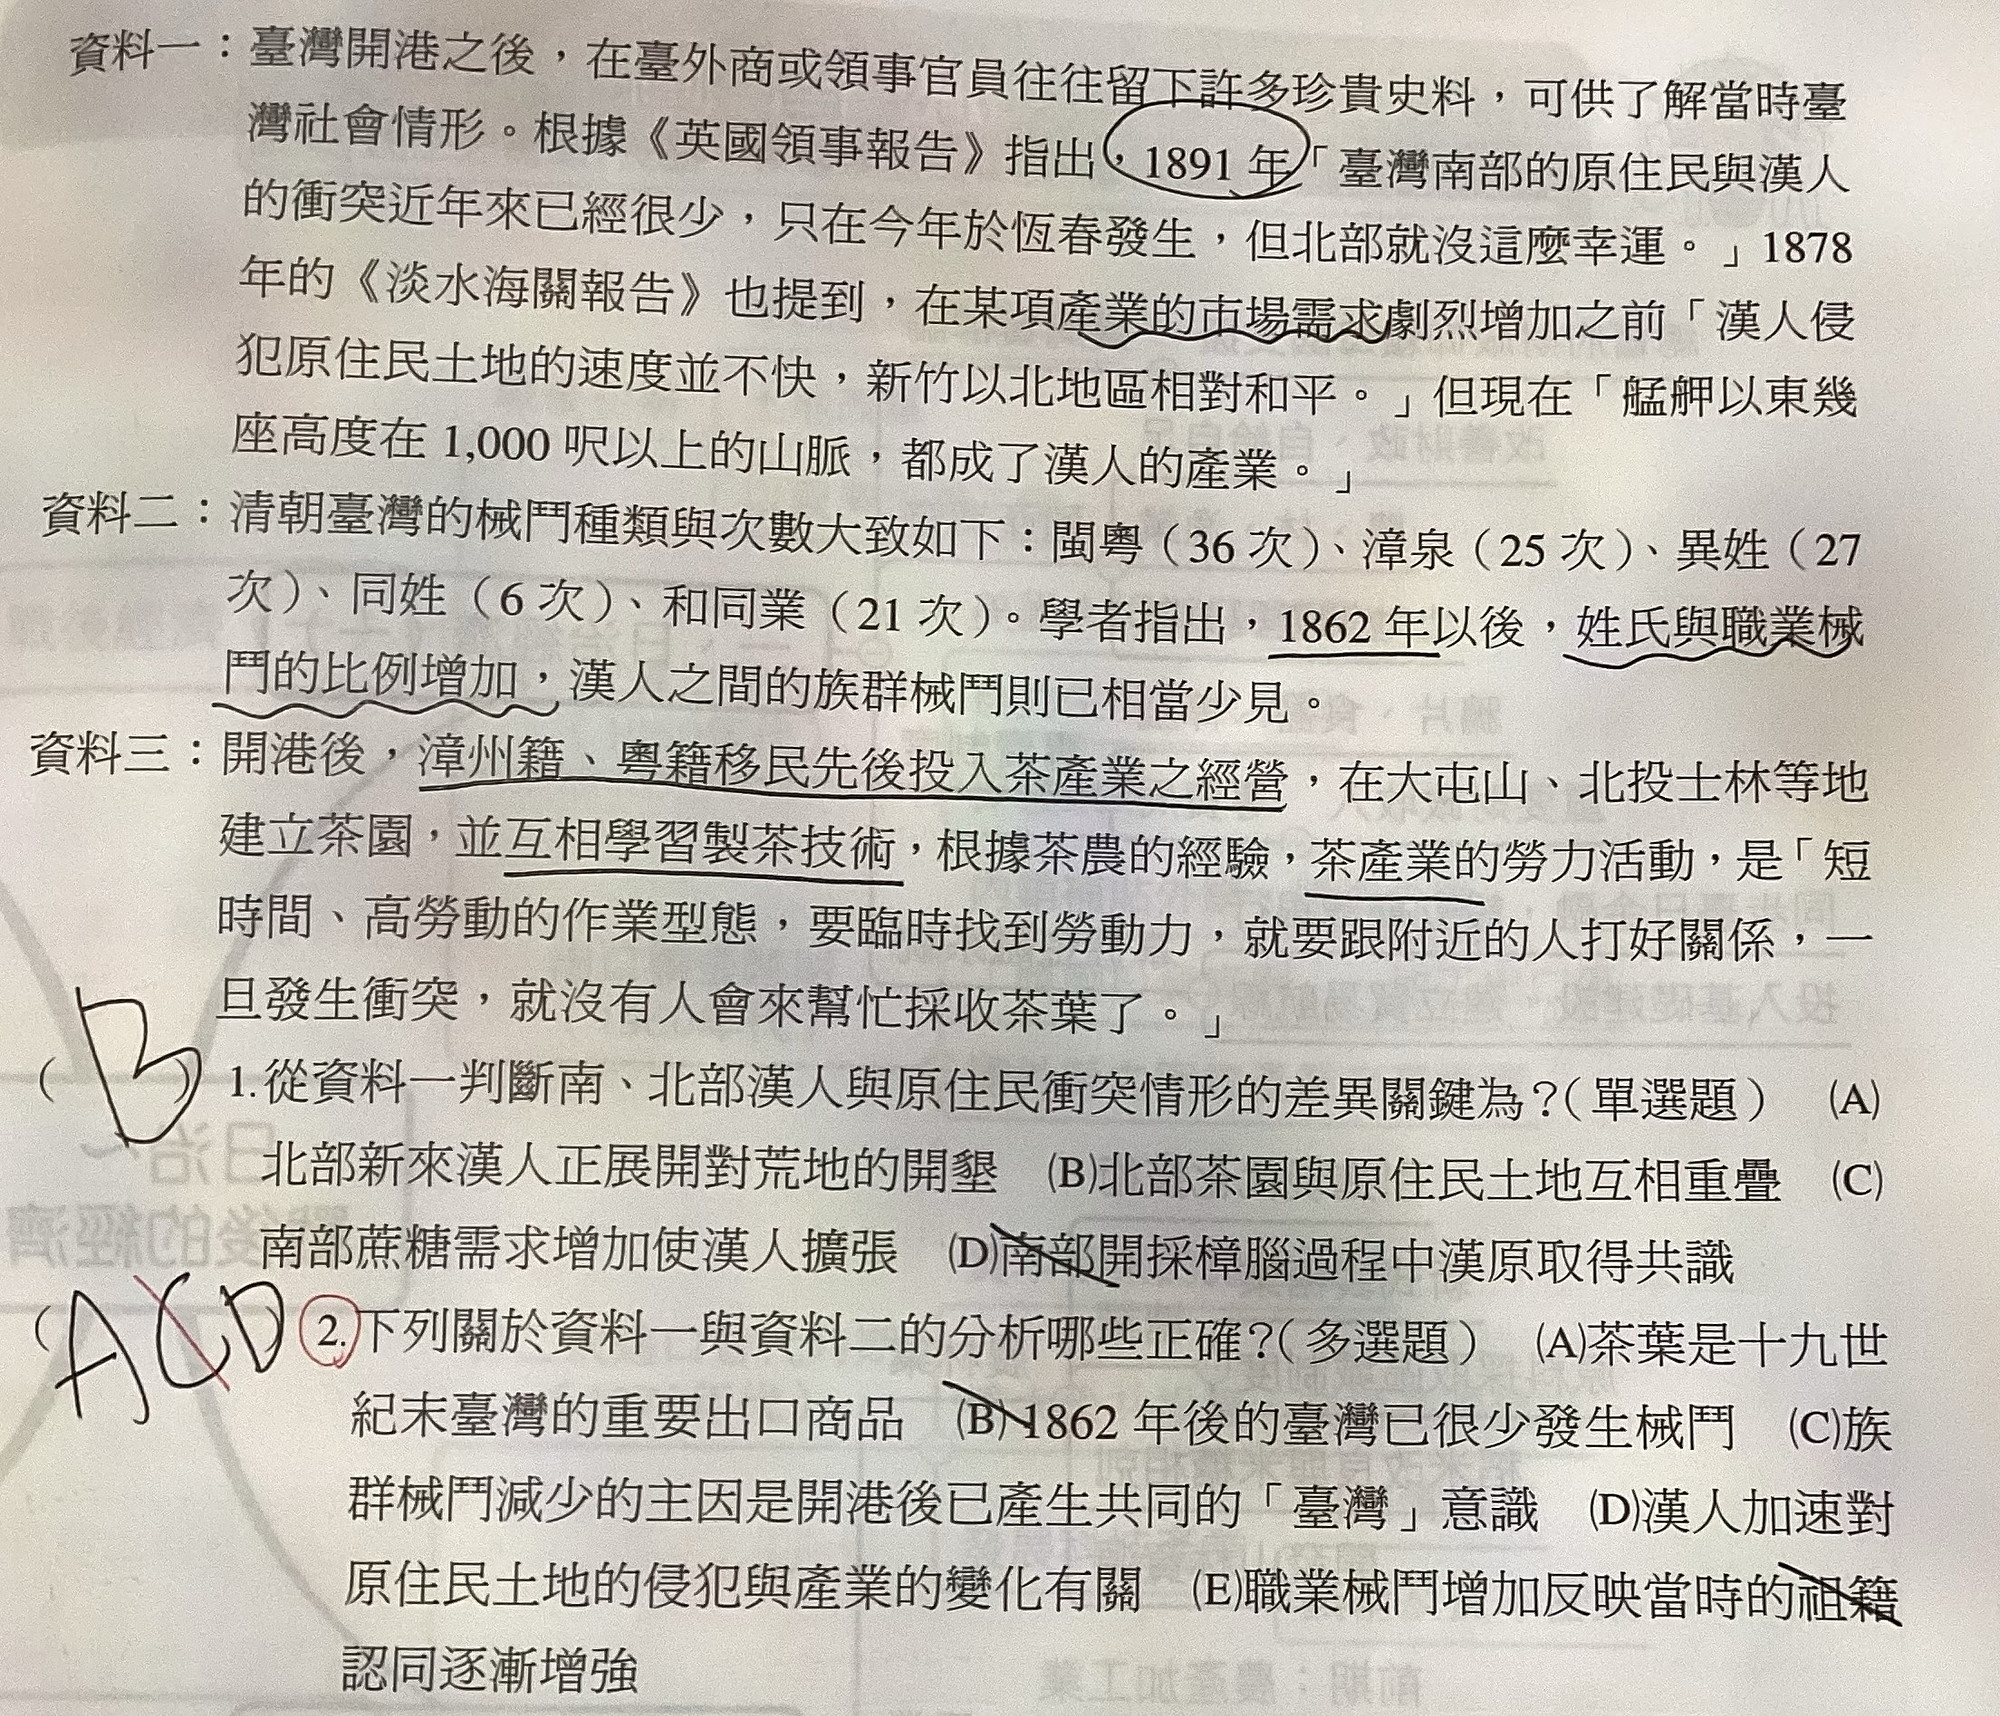 資料一：臺灣開港之後，在臺外商或領事官員往往留下許多珍貴史料，可供了解當時臺
灣社會情形。根據《英國領事報告》指出，1891 年「臺灣南部的原住民與漢人
的衝突近年來已經很少，只在今年於恆春發生，但北部就沒這麼幸運。」1878
年的《淡水海關報告》也提到，在某項產業的市場需求劇烈增加之前「漢人侵
犯原住民土地的速度並不快，新竹以北地區相對和平。」但現在「艋舺以東幾
座高度在 1,000 呎以上的山脈，都成了漢人的產業。」
資料二：清朝臺灣的械鬥種類與次數大致如下：閩粵（36 次）、漳泉（25 次）、異姓（27
次）、同姓（6 次）、和同業（21 次）。學者指出，1862 年以後，姓氏與職業械
鬥的比例增加，漢人之間的族群械鬥則已相當少見。
資料三：開港後，漳州籍、粵籍移民先後投入茶產業之經營，在大屯山、北投士林等地
建立茶園，並互相學習製茶技術，根據茶農的經驗，茶產業的勞力活動，是「短
時間、高勞動的作業型態，要臨時找到勞動力，就要跟附近的人打好關係，一
旦發生衝突，就沒有人會來幫忙採收茶葉了。」
（B）1.從資料一判斷南、北部漢人與原住民衝突情形的差異關鍵為？（單選題） (A)
北部新來漢人正展開對荒地的開墾 (B)北部茶園與原住民土地互相重疊 (C)
南部蔗糖需求增加使漢人擴張 (D)南部開採樟腦過程中漢原取得共識
（ACD 2.下列關於資料一與資料二的分析哪些正確？（多選題） (A)茶葉是十九世
紀末臺灣的重要出口商品 (B)1862 年後的臺灣已很少發生械鬥 (C)族
群械鬥減少的主因是開港後已產生共同的「臺灣」意識 (D)漢人加速對
原住民土地的侵犯與產業的變化有關 (E)職業械鬥增加反映當時的祖籍
認同逐漸增強